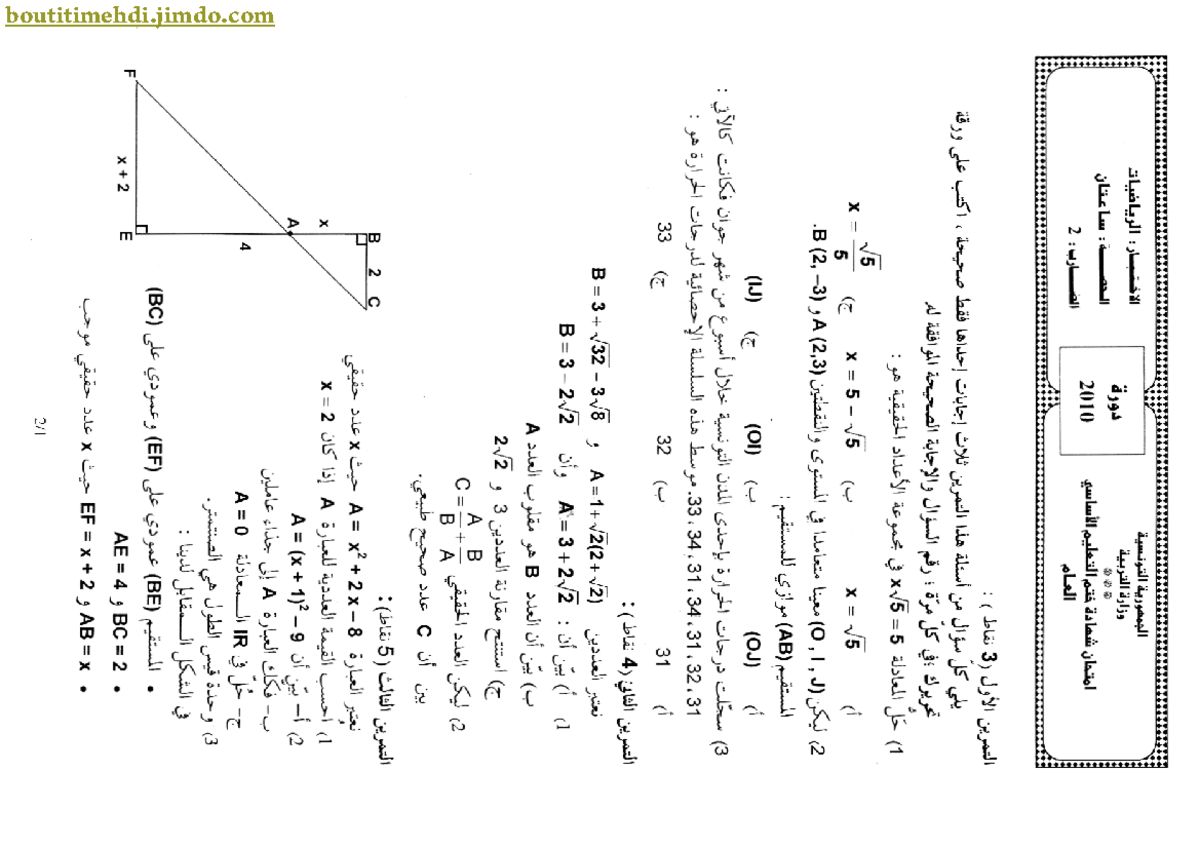 boutitimehdi.jimdo.com
الجمهورية التونسية
وزارة التربية
امتحان شهادة ختم التعليم الأساسي
العام
دورة
2010
الاختبار: الرياضيات
الحصة: ساعتان
الضارب: 2
التمرين الأول (3 نقاط):
يلي كل سؤال من أسئلة هذا التمرين ثلاث إجابات إحداها فقط صحيحة، اكتب على ورقة
تحريرك في كل مرة رقم السؤال والإجابة الصحيحة الموافقة له
1) حل المعادلة x√5 = 5 في مجموعة الأعداد الحقيقية هو:
أ) x = √5 ب) x = 5 − √5 ج) x = √5/5
2) ليكن (O , I , J) معينا متعامدا في المستوى والنقطتين A (2,3) و B (2, −3).
المستقيم (AB) موازي للمستقيم:
أ) (OJ) ب) (OI) ج) (IJ)
3) سجلت درجات الحرارة بإحدى المدن التونسية خلال أسبوع من شهر جوان فكانت كالآتي:
31 ، 32 ، 31 ، 34 ، 31 ، 34 ، 33. موسط هذه السلسلة الإحصائية لدرجات الحرارة هو:
أ) 31 ب) 32 ج) 33
التمرين الثاني (4 نقاط):
نعتبر العددين A = 1 + √2(2 + √2) و B = 3 + √32 − 3√8
1) أ) بين أن: A = 3 + 2√2 وأن B = 3 − 2√2
ب) بين أن العدد B هو مقلوب العدد A
ج) استنتج مقارنة العددين 3 و 2√2
2) ليكن العدد الحقيقي C = A/B + B/A
بين أن C عدد صحيح طبيعي.
التمرين الثالث (5 نقاط):
نعتبر العبارة A = x² + 2x − 8 حيث x عدد حقيقي
1) احسب القيمة العددية للعبارة A إذا كان x = 2
2) أ- بين أن A = (x + 1)² − 9
ب- فكك العبارة A إلى جذاء عاملين
ج- حل في IR المعادلة A = 0
3) وحدة قيس الطول هي الصنتمتر.
في الشكل المقابل لدينا:
• المستقيم (BE) عمودي على (EF) وعمودي على (BC)
• BC = 2 و AE = 4
• AB = x و EF = x + 2 حيث x عدد حقيقي موجب
B
2
C
x
A
4
F
x + 2
E
2/1